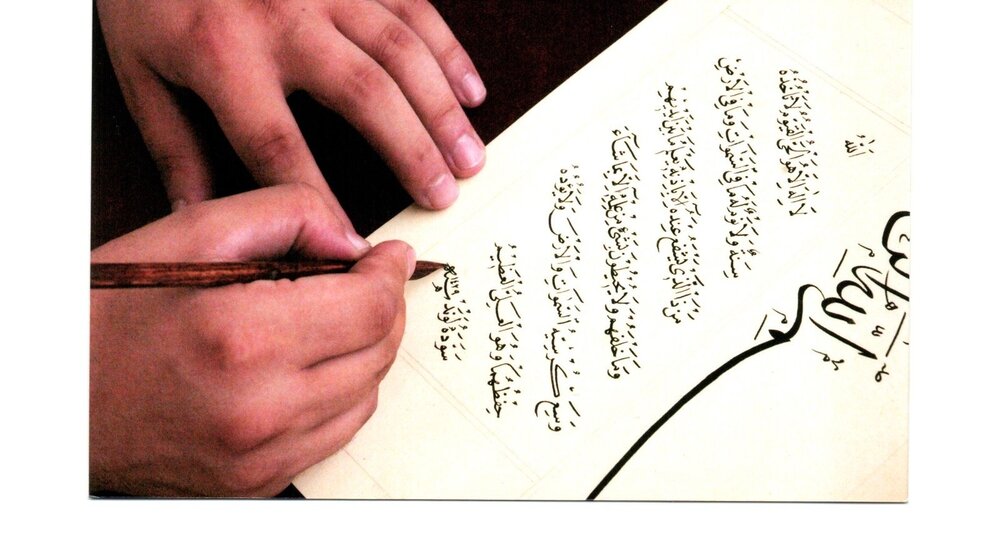 اَللّٰهُ
لَا اِلٰهَ اِلَّا هُوَ الْحَىُّ الْقَيُّومُ لَا تَأْخُذُهُ
سِنَةٌ وَلَا نَوْمٌ لَهُ مَا فِى السَّمٰوَاتِ وَمَا فِى الْاَرْضِ
مَنْ ذَا الَّذِى يَشْفَعُ عِنْدَهُ اِلَّا بِاِذْنِهِ يَعْلَمُ مَا بَيْنَ اَيْدِيهِمْ
وَمَا خَلْفَهُمْ وَلَا يُحِيطُونَ بِشَىْءٍ مِنْ عِلْمِهِ اِلَّا بِمَا شَاءَ
وَسِعَ كُرْسِيُّهُ السَّمٰوَاتِ وَالْاَرْضَ وَلَا يَؤُدُهُ
حِفْظُهُمَا وَهُوَ الْعَلِىُّ الْعَظِيمُ
سَوَّدَهُ ١٤٢٩